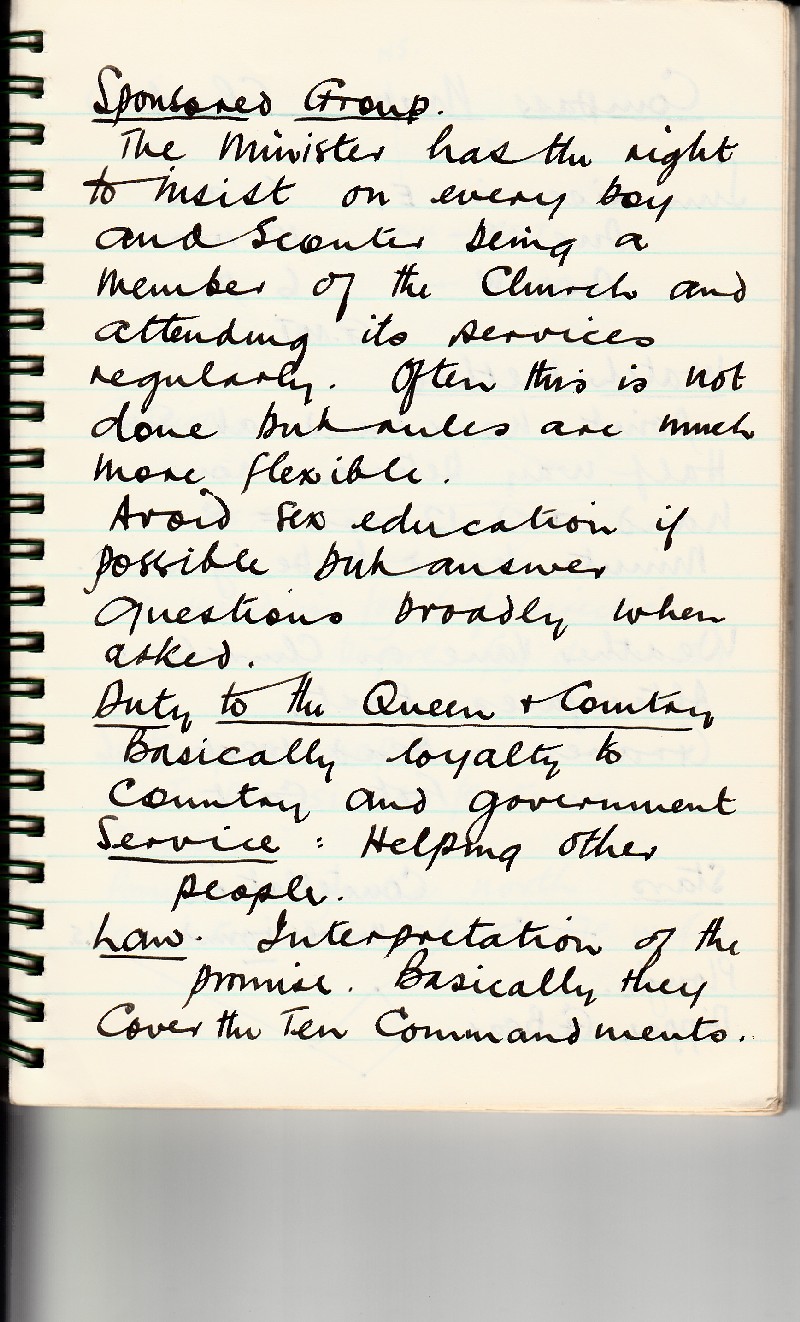 Sponsored Group.
The Minister has the right
to insist on every boy
and Scouter being a
member of the Church and
attending its services
regularly. Often this is not
done but rules are much
more flexible.
Avoid sex education if
possible but answer
questions broadly when
asked.
Duty to the Queen + Country
Basically loyalty to
Country and government
Service : Helping other
people.
Law. Interpretation of the
promise. Basically they
Cover the Ten Commandments.